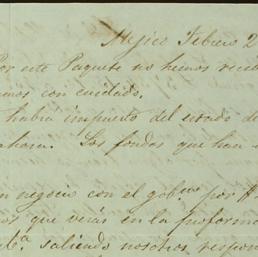 Mejico Febrero 2
Por este Paquete no hemos reci
mos con cuidado.
habia impuesto del estado de
ahora. Los fondos que han
n negocio con el gob.no por
os que verás en la proforma
saliendo nosotros respon